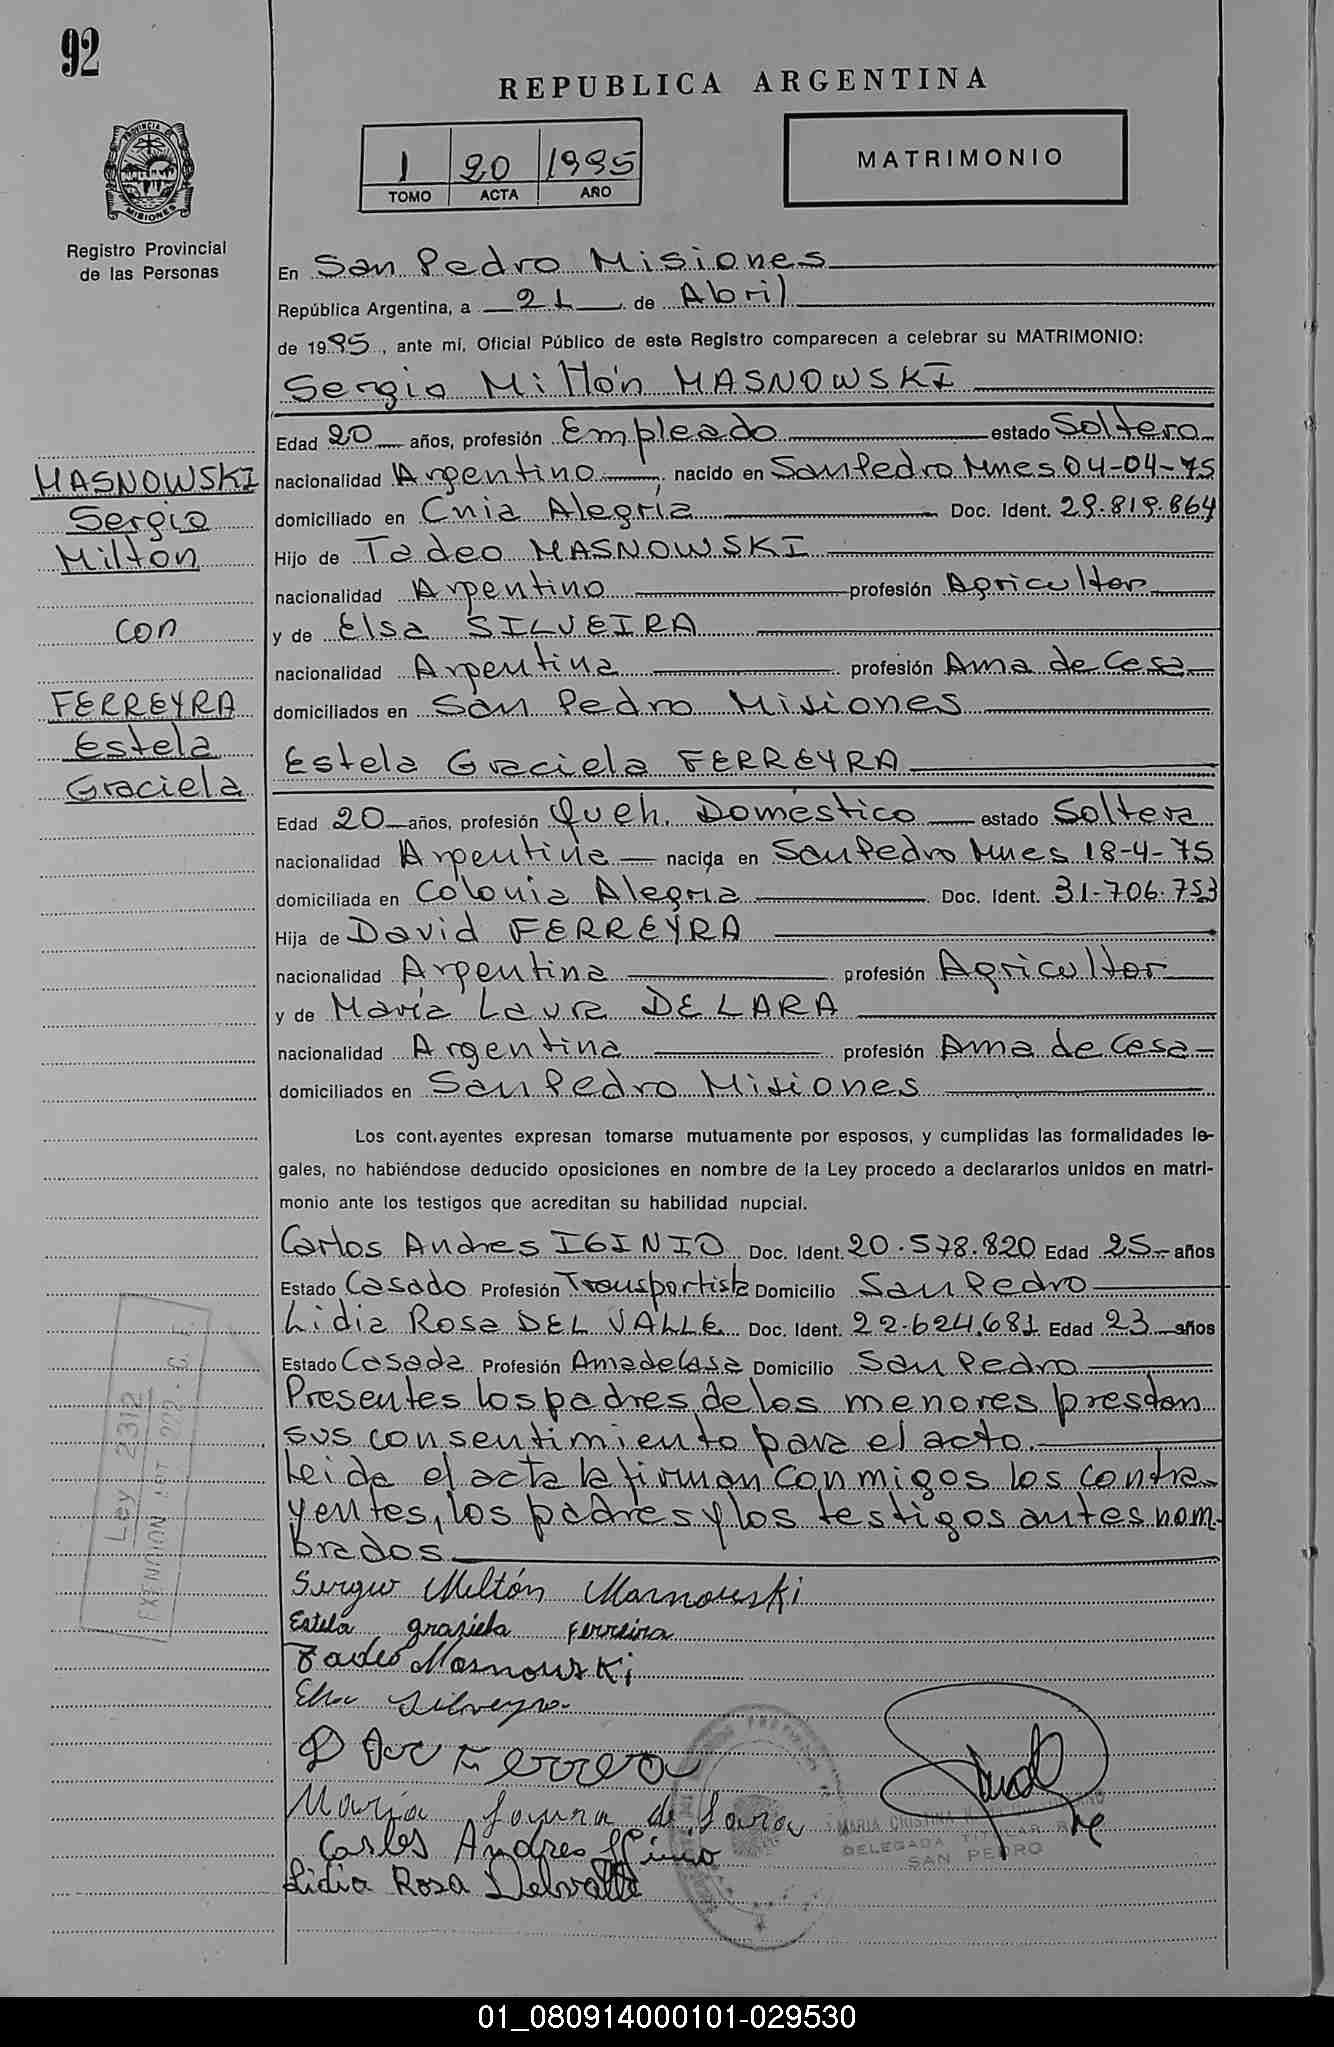 92
REPUBLICA ARGENTINA
1 20 1995
TOMO ACTA AÑO
MATRIMONIO
PROVINCIA DE
MISIONES
Registro Provincial
de las Personas
En San Pedro Misiones
República Argentina, a 21 de Abril
de 1995, ante mí, Oficial Público de este Registro comparecen a celebrar su MATRIMONIO:
Sergio Miltón MASNOWSKI
Edad 20 años, profesión Empleado estado Soltero
nacionalidad Argentino nacido en San Pedro Mnes 04-04-75
domiciliado en Cnia Alegría Doc. Ident. 29.819.864
Hijo de Tadeo MASNOWSKI
nacionalidad Argentino profesión Agricultor
y de Elsa SILVEIRA
nacionalidad Argentina profesión Ama de Casa
domiciliados en San Pedro Misiones
MASNOWSKI
Sergio
Milton
con
FERREYRA
Estela
Graciela
Estela Graciela FERREYRA
Edad 20 años, profesión Queh. Doméstico estado Soltera
nacionalidad Argentina nacida en San Pedro Mnes 18-4-75
domiciliada en Colonia Alegría Doc. Ident. 31.706.753
Hija de David FERREYRA
nacionalidad Argentina profesión Agricultor
y de María Laura DE LARA
nacionalidad Argentina profesión Ama de Casa
domiciliados en San Pedro Misiones
Los contrayentes expresan tomarse mutuamente por esposos, y cumplidas las formalidades le-
gales, no habiéndose deducido oposiciones en nombre de la Ley procedo a declararlos unidos en matri-
monio ante los testigos que acreditan su habilidad nupcial.
Carlos Andres IGINIO Doc. Ident. 20.578.820 Edad 25 años
Estado Casado Profesión Transportista Domicilio San Pedro
Lidia Rosa DEL VALLE Doc. Ident. 22.624.681 Edad 23 años
Estado Casada Profesión Ama de Casa Domicilio San Pedro
Presentes los padres de los menores prestan
sus consentimiento para el acto.
Leida el acta la firman conmigos los contra-
yentes, los padres y los testigos antes nom-
brados
Ley 2312
EXENCION ART 222
Sergio Miltón Masnouski
Estela grasiela Ferreira
Tadeo Masnouski
Elsa Silveyra
Ferrera
María Laura de Lara
Carlos Andres Iginio
Lidia Rosa Delvalle
MARIA CRISTINA
DELEGADA TITULAR
SAN PEDRO
01_080914000101-029530